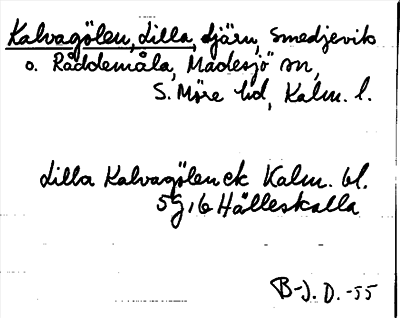 Kalvagölen, Lilla, tjärn, Smedjevik
o. Råddemåla, Madesjö sn,
S. Möre hd, Kalm. l.
Lilla Kalvagölen ek Kalm. bl.
5g, 16 Hälleskalla
B-J. D. -55